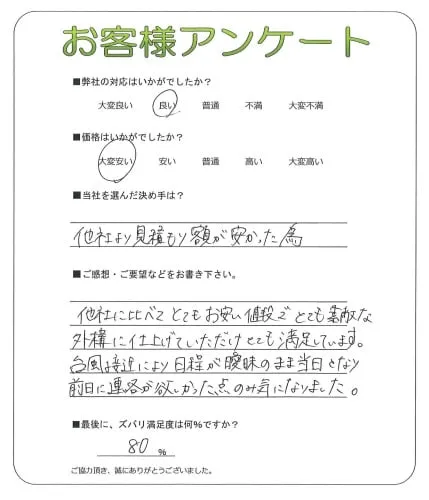 お客様アンケート
■弊社の対応はいかがでしたか？
大変良い 良い 普通 不満 大変不満
■価格はいかがでしたか？
大変安い 安い 普通 高い 大変高い
■当社を選んだ決め手は？
他社より見積もり額が安かった為
■ご感想・ご要望などをお書き下さい。
他社に比べてとてもお安い値段でとても素敵な
外構に仕上げていただけとても満足しています。
台風接近により日程が曖昧のまま当日となり
前日に連絡が欲しかった点のみ気になりました。
■最後に、ズバリ満足度は何%ですか？
80 %
ご協力頂き、誠にありがとうございました。